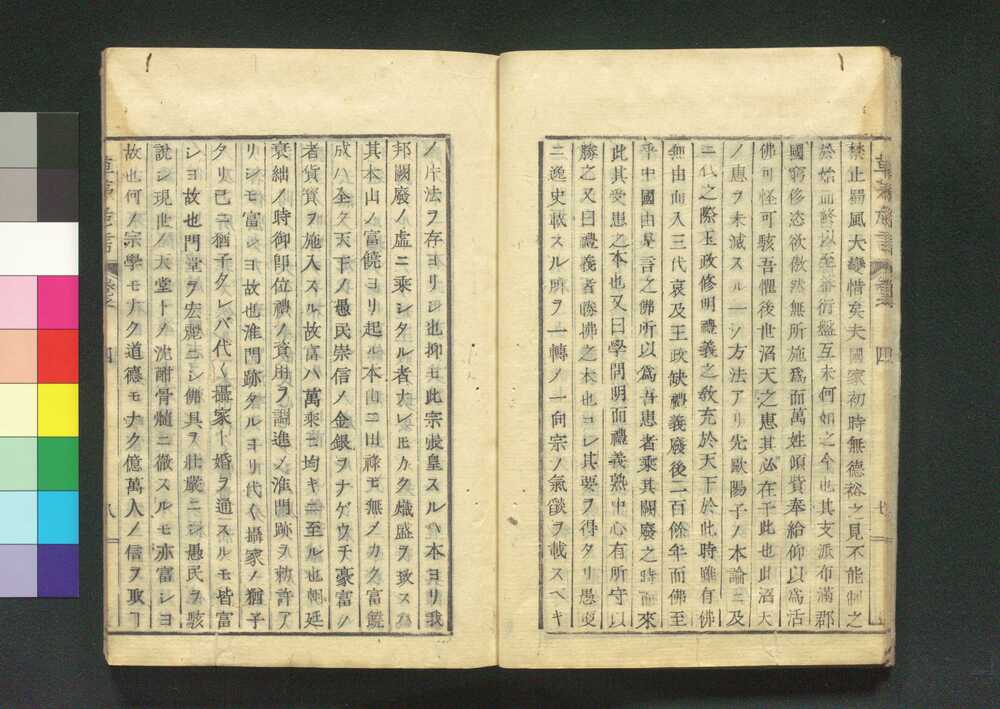 禁止蜀風大變惜矣夫國家初時無德裕之見不能制之
於始而終以至蕃衍盤互未何如之今也其支派布滿郡
國窮侈恣欲傲然無所施爲而萬姓頃貲奉給仰以爲活
佛可怪可駭吾懼後世滔天之患其必在于此也此滔天
ノ患ヲ未滅スル一ツ方法アリ先歐陽子ノ本論ニ及
ニ代之際王政修明禮義之教充於天下於此時雖有佛
無由而入三代衰及王政缺禮義廢後二百餘年而佛至
乎中國由是言之佛所以爲吾患者乘其闕廢之時而來
此其受患之本也又曰學問明而禮義熟中心有所守以
勝之又曰禮義者勝佛之本也コレ其要ヲ得タリ愚更
ニ逸史載スル所ヲ一轉ノ一向宗ノ氣燄ヲ載スベキ
ノ片法ヲ存ヨリシ也抑モ此宗張皇スルハ本ヨリ我
邦闕廢ノ虛ニ乘シタル者ナレモカク熾盛ヲ致スハ
其本山ノ富饒ヨリ起ル本山ニ田祿モ無メカク富饒
成ハ全ク天下ノ愚民崇信ノ金銀ヲナゲウチ豪富ノ
者貨寳ヲ施入スル故富ハ萬乘ニ均キニ至ル也朝廷
衰絀ノ時御卽位禮ノ資用ヲ調進メ准門跡ヲ勅許ア
リシモ富シヨ故也准門跡タルヨリ代〱攝家ノ猶子
タリ已ニ猶子タレバ代〱攝家ト婚ヲ通スルモ皆富
シヨ故也門堂ヲ宏麗ニシ佛具ヲ壯嚴ニシ愚民ヲ駭
說シ現世ノ天堂トノ沈酣骨髓ニ徹スルモ亦富シヨ
故也何ノ宗學モナク道德モナク億萬人ノ信ヲ取丁
四
四
八